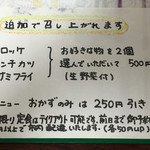 追加で召し上がれます
ロッケ
ンチカツ
ジミフライ
お好きな物を2個
選んでいただいて 500円
(生野菜付)
ニュー おかずのみは 250円引き
定食はテイクアウト可能です。前日まで
以上で 市内 配達いたします。(各50円UP)